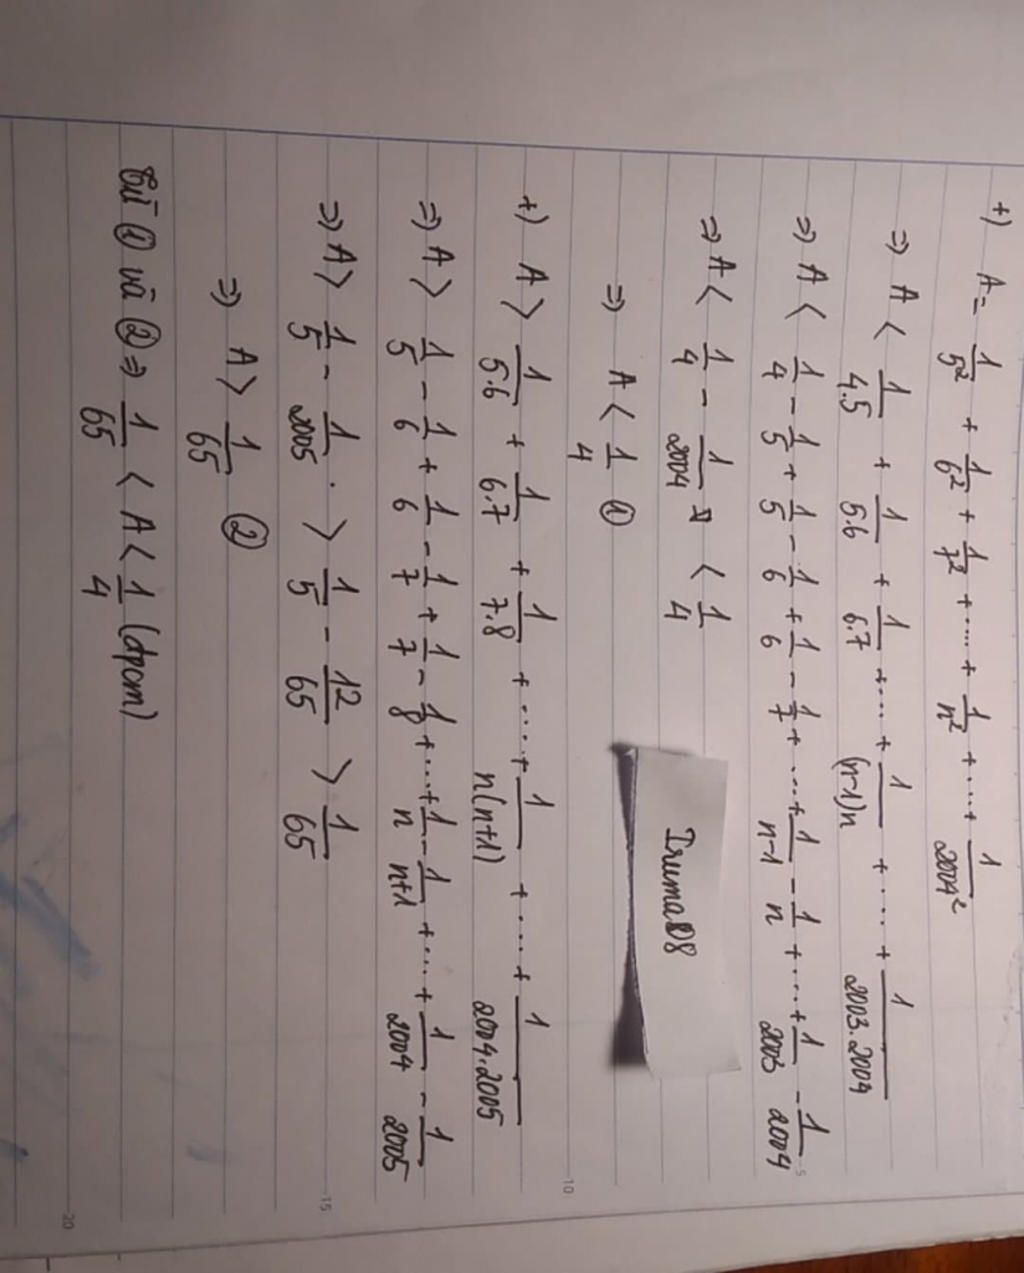 +) A = 1/5² + 1/6² + 1/7² + .... + 1/n² + .... + 1/2004²
=> A < 1/4.5 + 1/5.6 + 1/6.7 + .... + 1/(n-1)n + .... + 1/2003.2004
=> A < 1/4 - 1/5 + 1/5 - 1/6 + 1/6 - 1/7 + .... + 1/n-1 - 1/n + .... + 1/2003 - 1/2004
=> A < 1/4 - 1/2004 < 1/4
=> A < 1/4 ①
IrumaD8
+) A > 1/5.6 + 1/6.7 + 1/7.8 + .... + 1/n(n+1) + .... + 1/2004.2005
=> A > 1/5 - 1/6 + 1/6 - 1/7 + 1/7 - 1/8 + ... + 1/n - 1/n+1 + .... + 1/2004 - 1/2005
=> A > 1/5 - 1/2005 . > 1/5 - 12/65 > 1/65
=> A > 1/65 ②
Từ ① và ② => 1/65 < A < 1/4 (đpcm)
5
10
15
20